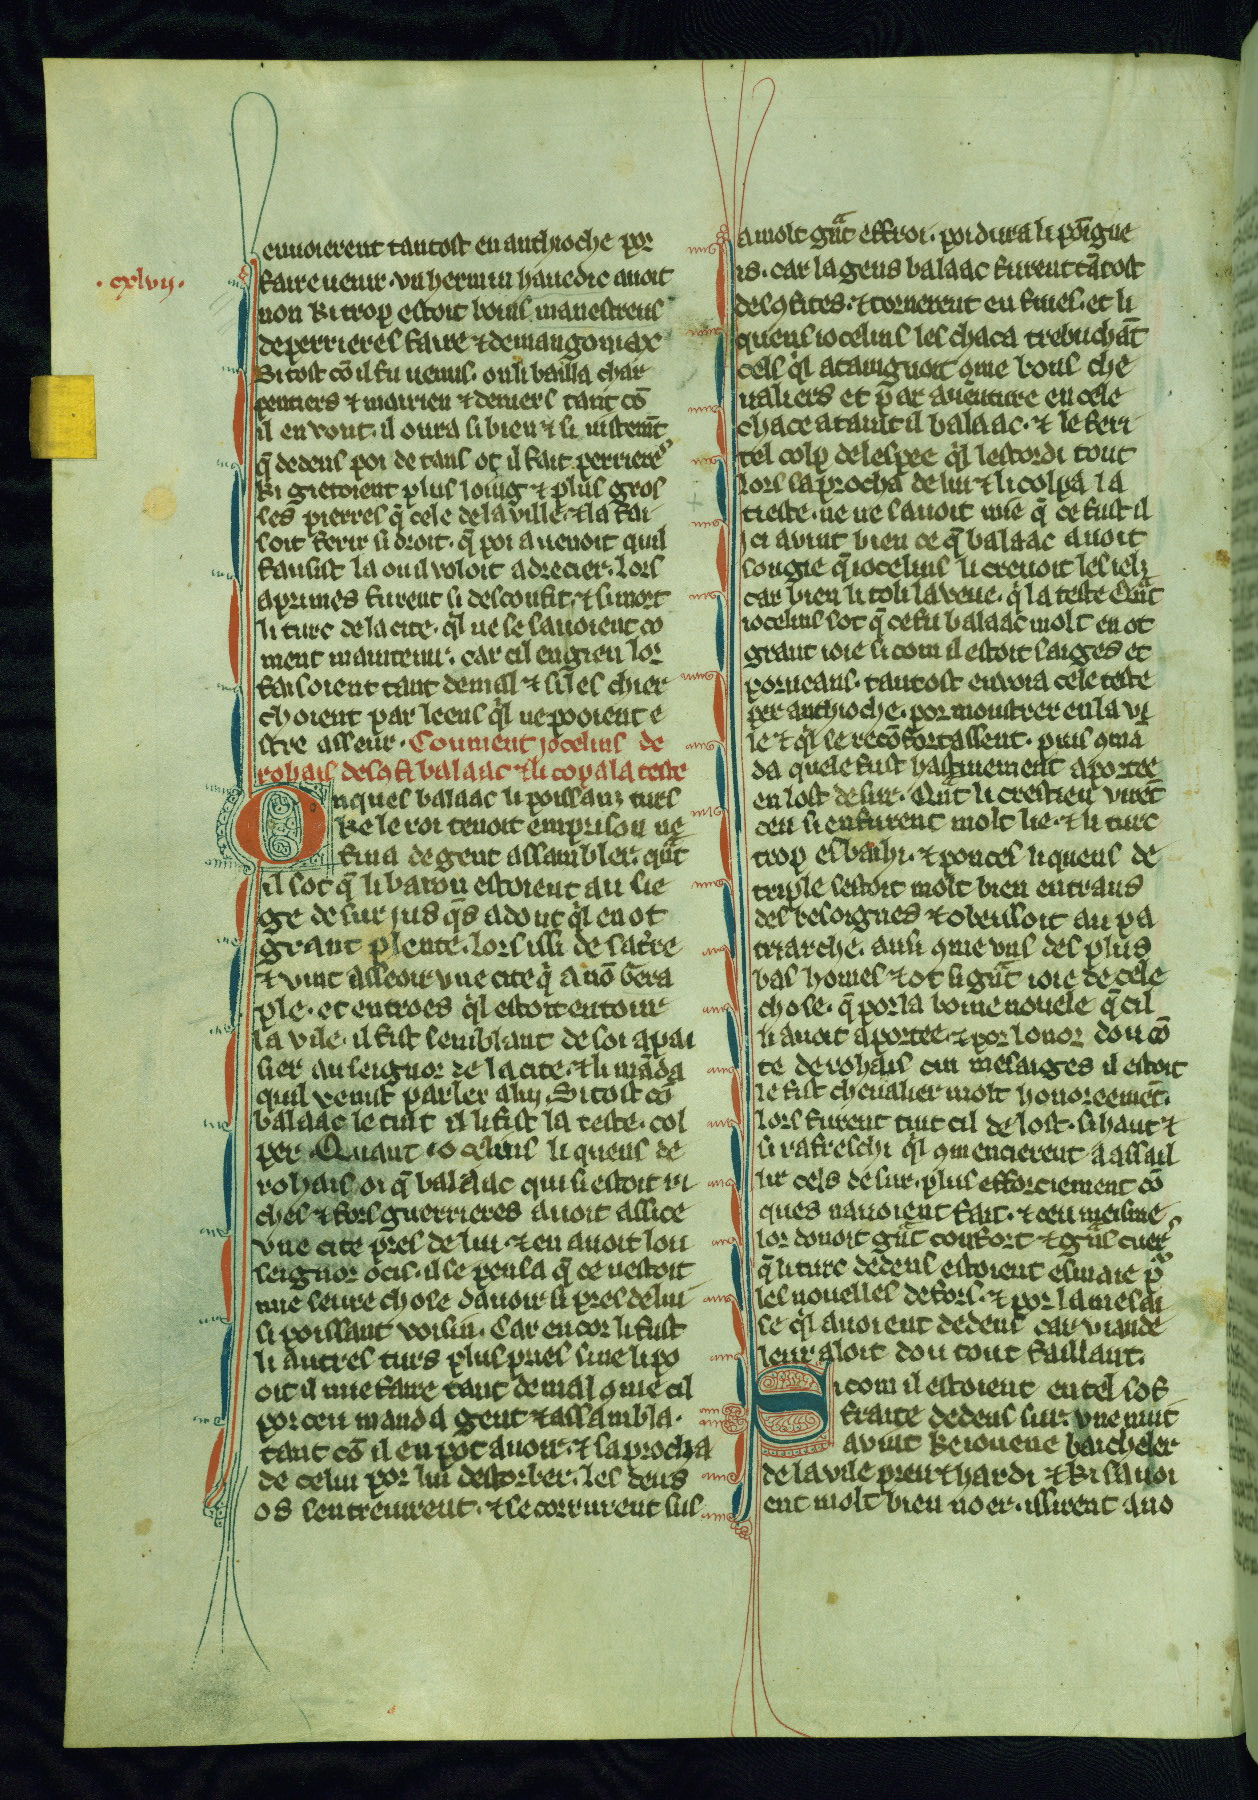 .cxlvij.
envoierent tantost en anthioche por
faire venir .vn hermin havedic avoit
non ki trop estoit bons manestreus
de perrieres faire ⁊ de mangoniax
Si tost cõ il fu venus. on li bailla char
pentiers ⁊ mairien ⁊ deniers tant cõ
il en vont. il oura si bien ⁊ si vistemẽt
q̃ dedens poi de tans ot il fait perrieres
ki gietoient plus loing ⁊ plus gros
ses pierres q̃ cele de la ville. ⁊ la fai
soit ferir si droit. q̃ poi avenoit quil
fausist la ou il voloit adrecier. lors
aprimes furent si desconfit. ⁊ si mort
li turc de la cite. ql ne se savoient co
ment maintenir. car cil engien lor
faisoient tant de mal ⁊ si les chier
choient par leens ql ne pooient e
stre asseur. Coument jocelins de
rohais desꝯfi balaac ⁊ li copa la teste
Onques balaac li poissanz turs
ke le roi tenoit em prison ne
fina de gent assambler. quãt
il sot q̃ li baron estoient au sie
ge de sur jus q̃s adont ql en ot
grant plente. lors issi de sa tr̃re
⁊ vint asseoir vne cite q̃ a nõ bera
ple. et entroes ql estoit entour
la vile. il fist semblant de soi apai
sier au seignor de la cite. ⁊ li mãda
quil venist parler a luj. Si tost cõ
balaac le tint il li fist la teste. col
per. Quant jocelins li quens de
rohais oi q̃ balaac qui si estoit ri
ches ⁊ fors guerrieres avoit assice
vne cite pres de lui. ⁊ en avoit lou
seignor ocis. il se pensa q̃ ce nestoit
mie seure chose davoir si pres de lui
si poissant voisin. Car encor li fust
li autres turs plus pres sine li po
oit il mie faire tant de mal ꝯme cil
por ceu manda gent ⁊ assambla.
tant cõ il en pot avoir. ⁊ saprocha
de celui por lui destorber. les deus
os sentrevirent. ⁊ se corrurent sus
a molt grãt effroi. poi dura li põigne
is. car la gens balaac furent tãtost
desꝯfites. ⁊ tornerent en fuies. et li
quens jocelins les chaca trebuchãt
cels ql ataingnoit ꝯme bons che
valiers et par aventure en cele
chace ataint il balaac. ⁊ le feri
tel colp de lespee ql lestordi tout
lors saprocha de lui ⁊ li colpa la
tieste. ne ne savoit mie q̃ ce fust il
ci avint bien ce q̃ balaac avoit
songie q̃ jocelins li crevoit les ielz
car bien li toli la veue. q̃ la teste Quãt
jocelins sot q̃ ce fu balaac molt en ot
grant joie si com il estoit saiges et
porveans. tantost envoia cele teste
per anthioche. por moustrer en la vi
le ⁊ ql se recõfortassent. puis ꝯmã
da quele fust hastivement aportee
en lost de sur. Qãt li crestien virẽt
ceu si en furent molt lie. ⁊ li turc
trop esbaihi. ⁊ ponces li quens de
triple sestoit molt bien entrans
des besoignes ⁊ obeissoit au pa
triarche. ausi ꝯme vns des plus
bas homes ⁊ ot si grãt joie de cele
chose. q̃ por la bonne novele q̃ cil
li avoit aportee. ⁊ por lonor dou cõ
te de rohais cui mesaiges il estoit
le fist chevalier molt honoreemẽt.
lors furent tint cil de lost. si haut ⁊
si rafreschi ql ꝯmencierent a assail
lir cels de sur. plus efforciement cõ
ques navoient fait. ⁊ ceu meisme
lor donoit grãt confort ⁊ grãs cuers
q̃ li turc dedens estoient esmaie por
les nouelles defors. ⁊ por la mesai
se ql avoient dedens car viande
leur aloit dou tout faillant.
Si com il estoient en tel sof
fraite dedens sur. vne nuit
avint ke iovene baicheler
de la vile preu ⁊ hardi ⁊ ki savoi
ent molt bien noer. issirent a no